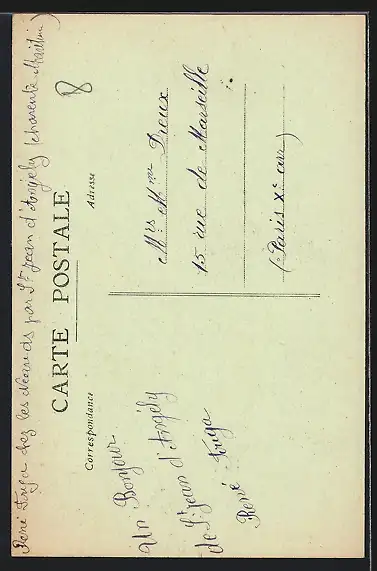 René Fuga chez les Nouauds par St Jean d'Angély (charente Maritim)
8
CARTE POSTALE
Correspondance
Adresse
Un Bonjour
de St jean d'Angély
René Fuga
Mrs Mme Dreux
15 rue de Marseille
(Paris Xe arr)